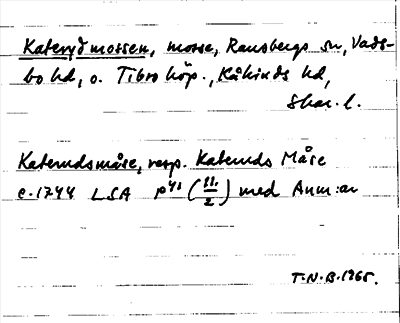 Katerydmossen, mosse, Ransbergs sn, Vads-
bo hd, o. Tibro köp., Kåkinds hd,
Skar. l.
Katerudsmåse, resp. Kateruds Måse
c. 1744 LSA P 41 (11/2) med Anm:ar
T.N.B. 1965.